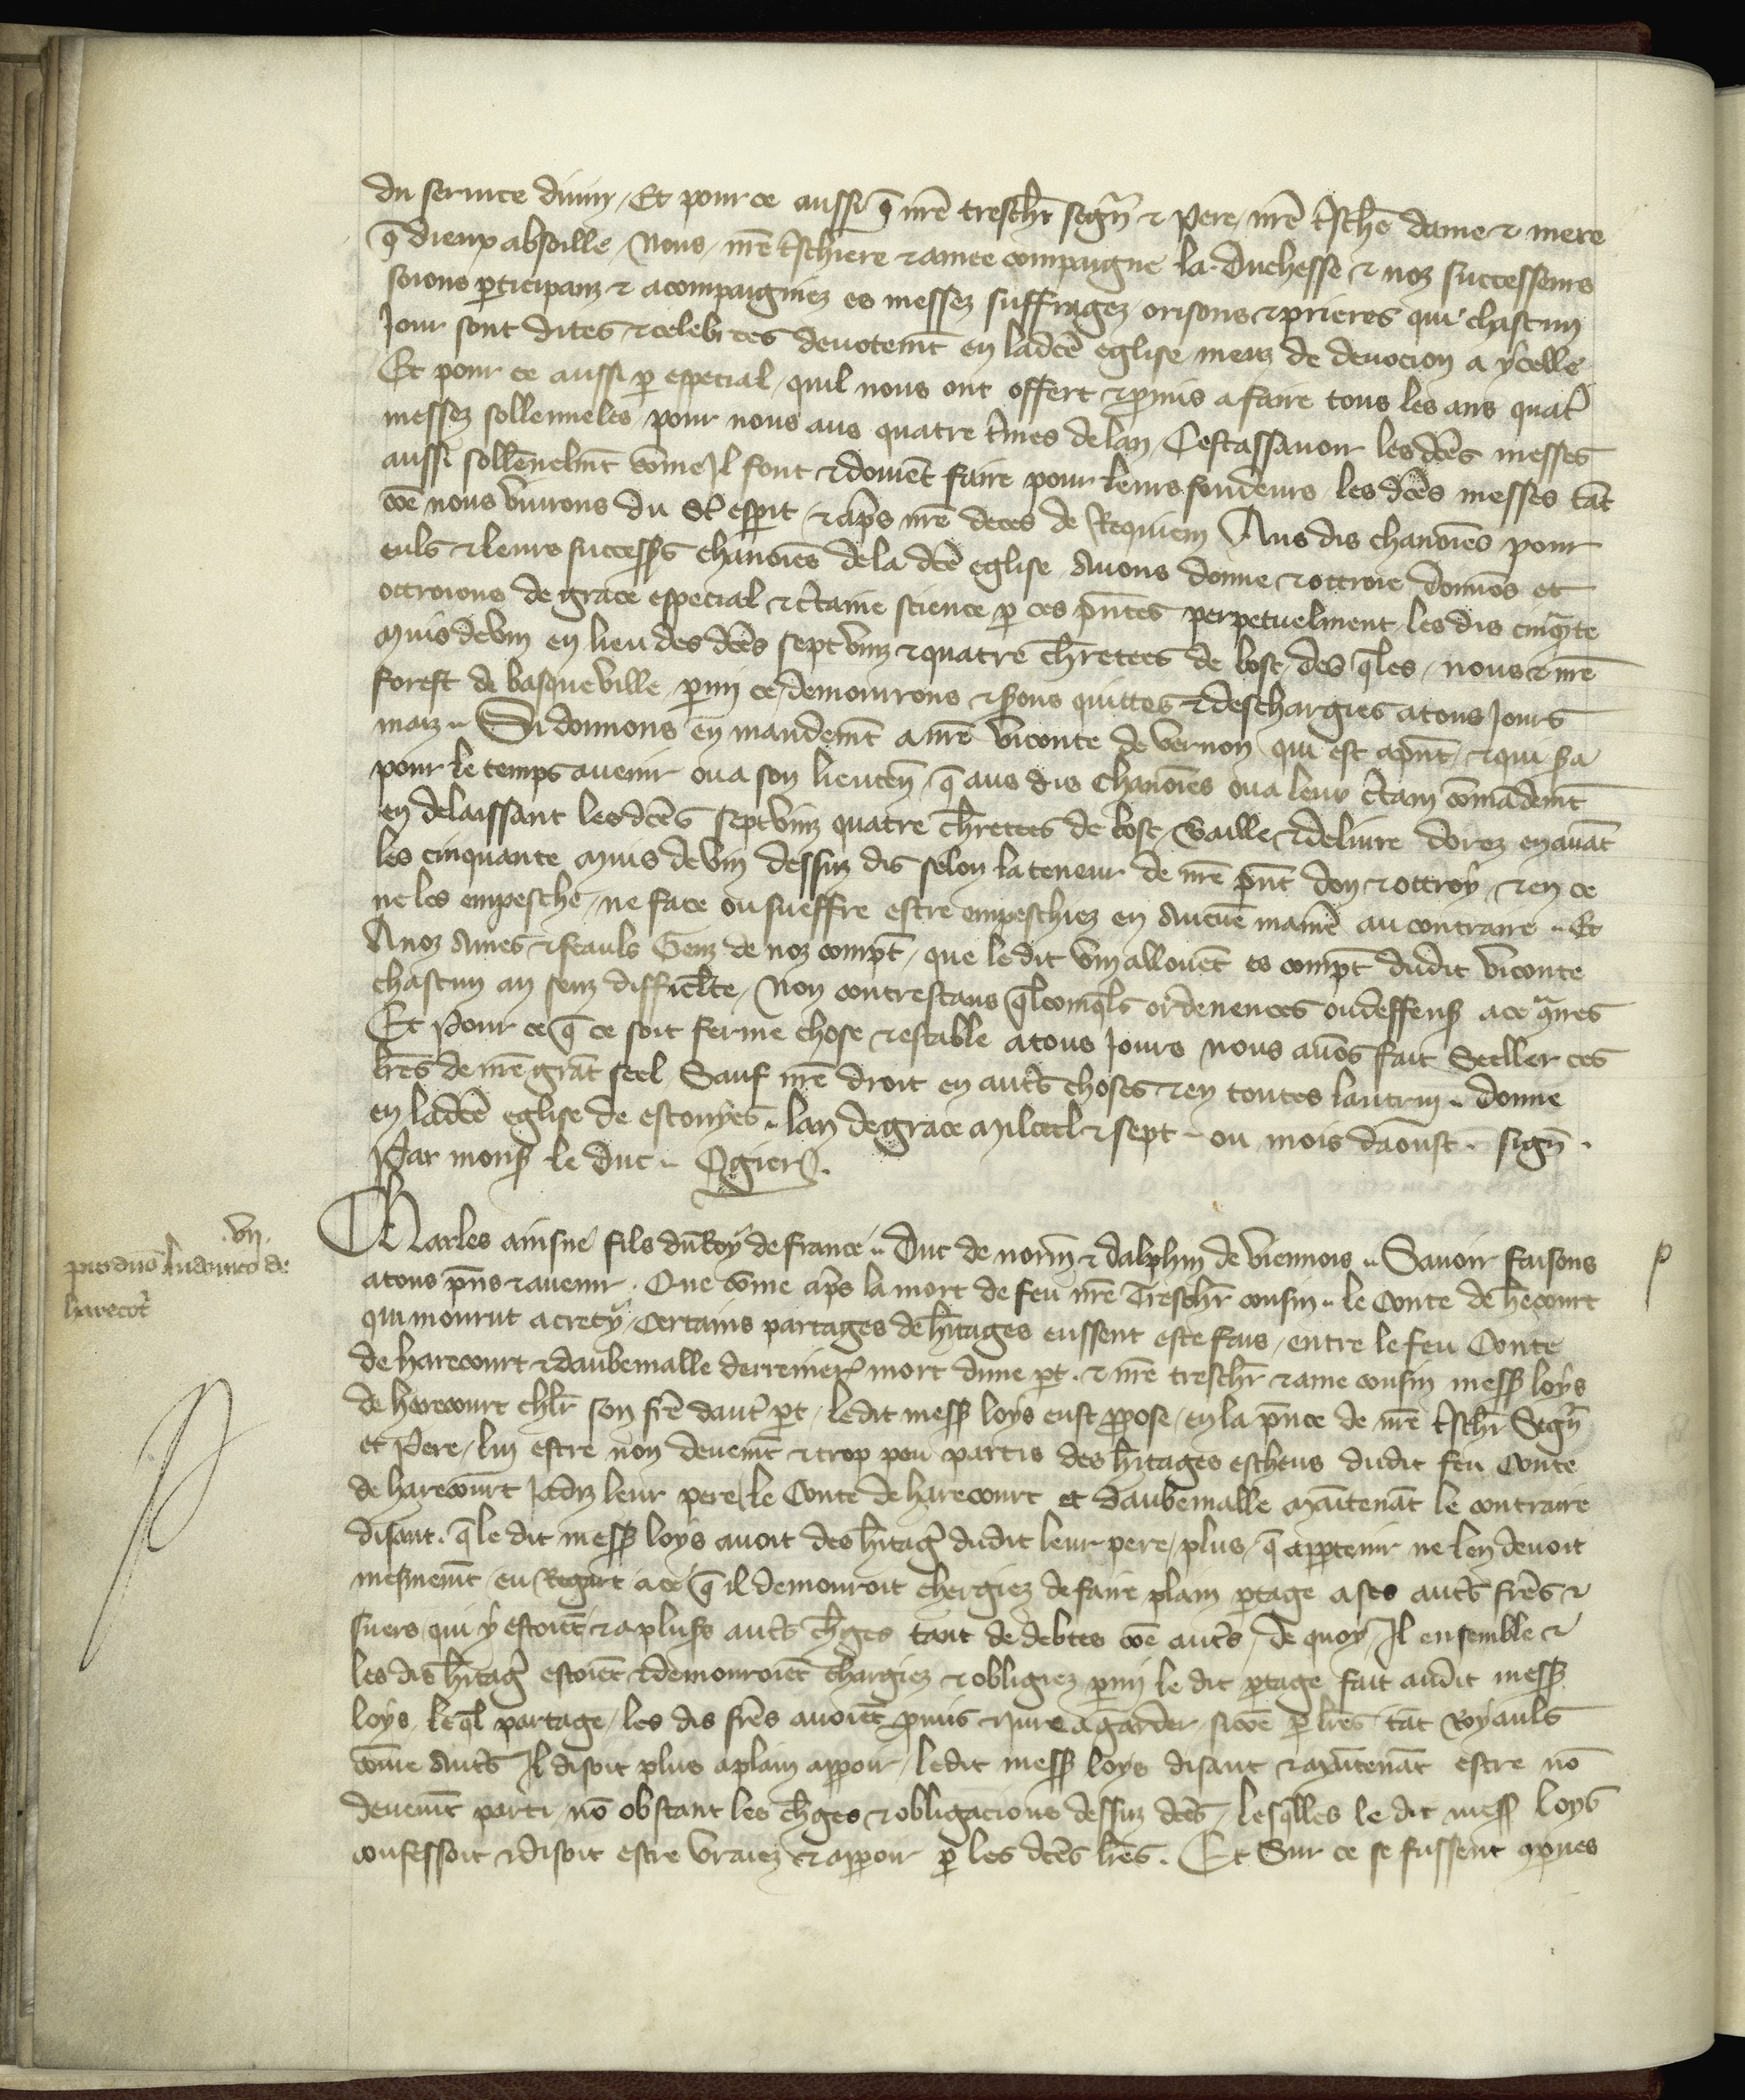 du seruice diuin / Et pour ce aussi q̄ nr̄e tresch̄r seign̄ & Pere / nr̄e t̄sch̄e dame & mere
q̄ dieux absoille / Nous / nr̄e t̄schiere & amee compaigne la duchesse & noz successeurs
soions p̱ticipanz & acompaigniez es messez suffragez orisons & prieres qui chascun
Jour sont dites & celebrees deuotem̄t en lad̄ce eglise / meuz de deuocion a ycelle
Et pour ce aussi p̱ especial / quil nous ont offert & p̱mis a faire tous les ans quat̄
messez sollenneles pour nous aus quatre t̄mes de lan / Cestassauoir les d̄ces messes
aussi sollēnelm̄t cōme Jl font & doiuēt faire pour leurs fondeurs les d̄ces messes tāt
cōe nous viurons du st̄ esp̱it / & ap̄s nr̄e deces de Requiem Aus dis chanoīes pour
euls & leurs success̱s chanoīes de la d̄ce eglise Auons donne & ottroie donnōs et
ottroions de grace especial & c̄taine science p̱ ces p̄ntes perpetuelment les dis cinq̄nte
muis de vin en lieu des d̄ces sept vinz & quatre ch̄retees de bost / des q̄les / nous & nr̄e
forest de basqueville p̱mi ce / demourrons & s̱ons quittes & deschargies a tous Jours
maiz .. Si donnons en mandem̄t a nr̄e viconte de vernon qui est ap̄nt / & qui s̱a
pour le temps auenir ou a son lieuten̄ / q̄ aus dis chanoīes ou a leur c̄tain cōmādem̄t
en delaissant les d̄ces sept vinz quatre ch̄retees de bost / Baille & deliure dorez enauāt
les cinquante muis de vin dessuz dis selon la teneur de nr̄e p̄nt don & ottroy / & en ce
ne les empesche / ne face ou sueffre estre empeschiez en aucūe maniē au contraire .. Et
A noz Ames & feauls Genz de noz compt̄ / que le dit vin allouēt es compt̄ dudit viconte
chascun an senz difficlte / Non contrestans q̄lcomq̄s ordenences ou deffens̱ a ce q̄nes
Et Pour ce q̄ ce soit ferme chose & estable a tous Jours nous auōs fait Seeller ces
lr̄es de nr̄e grāt seel Sauf nr̄e droit en aut̄s choses & en toutes lautrui .. donne
en lad̄ce eglise de estouyes .. lan de grace mil ccc l & sept .. ou mois daoust . sign̄ .
Par mons̱ le duc .. Ogier .
Charles ainsne fils du Roy de france .. Duc de norm̄ & dalphin de viennois .. Sauoir faisons
a tous p̄ns & auenir . Que cōme ap̄s la mort de feu nr̄e Tresch̄r cousin .. le Conte de h̄ecourt
qui mourut a crecy / certains partages de h̄itages eussent este fais / entre le feu Conte
de harecourt & daubemalle derrenier mort dune p̱t . & nr̄e tresch̄r & ame cousin mess̱ loys
de harecourt chl̄r son fr̄e daut̄ p̱t / le dit mess̱ loys eust p̱pose / en la p̄nce de nr̄e t̄sch̄r Seign̄
et Pere / lui estre non deuem̄t & trop peu partis des h̄itages escheus dudit feu Conte
de harecourt Jadiz leur pere / le Conte de harecourt et daubemalle māintenāt le contraire
disant . q̄ le dit mess̱ loys auoit des h̄itaḡ dudit leur pere / plus / q̄ app̱tenir ne len deuoit
mesmem̄t eu Regart a ce q̄ il demouroit chergiez de faire plain p̱tage a ses aut̄s fr̄es &
suers qui y estoiēt & a plus̱s aut̄s ch̄ges tant de debtes cōe aut̄s / de quoy / Il ensemble &
les dis h̄itaḡ estoiēt & demouroiēt chargiez & obligiez p̱mi le dit p̱tage fait audit mess̱
loys / le q̄l partage / les dis fr̄es auoiēt p̱mis & Jure a garder / si cōe p̱ lr̄es / tāt Royauls
cōme aut̄s Il disoit plus a plain apparoir / le dit mess̱ loys disant & mātenāt estre nō
deuem̄t parti / nō obstant les ch̄ges & obligacions dessuz d̄ces / les q̄lles le dit mess̱ loys
confessoit & disoit estre vraiez & apparoir p̱ les d̄ces lr̄es . Et Sur ce se fussent
.vii.
pro dn̄o Ludouico de
harecot̄
p